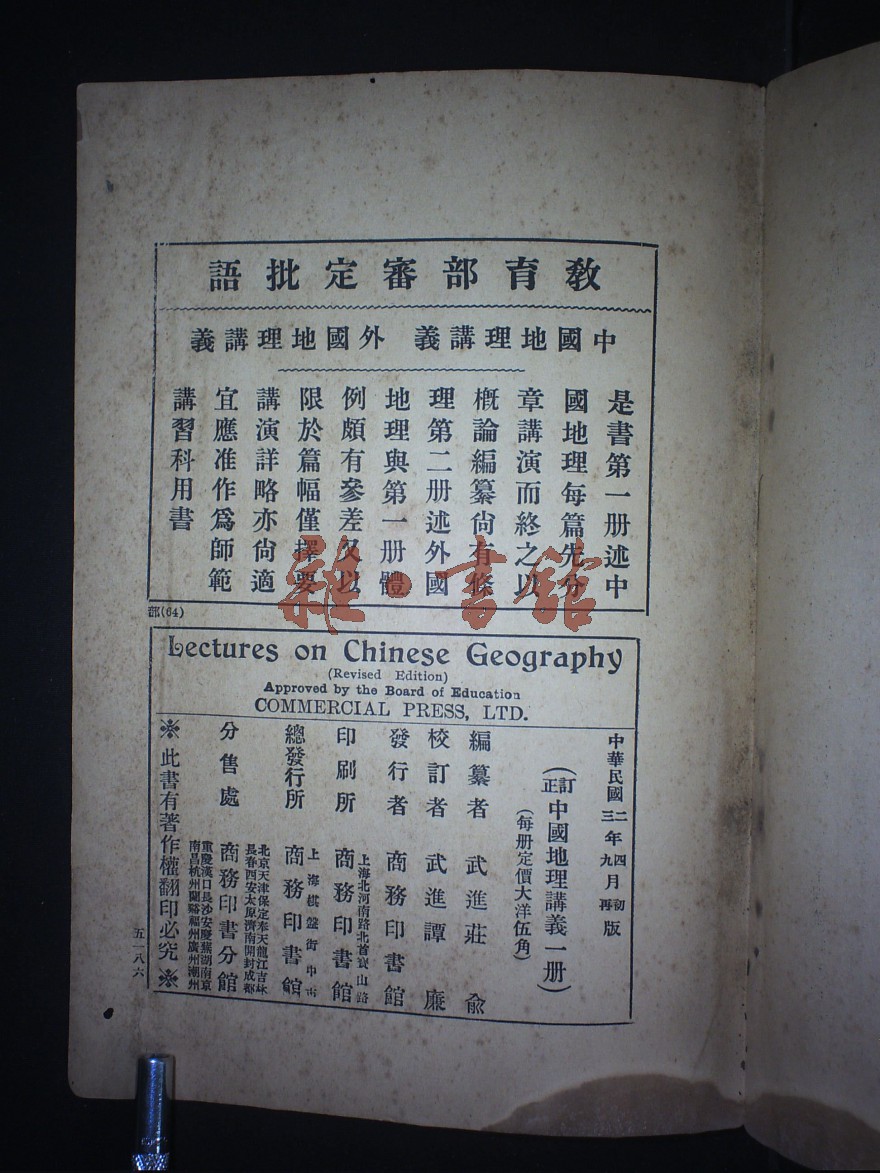 教育部審定批語
中國地理講義 外國地理講義
是書第一册述中
國地理每篇先分
章講演而終之以
概論編纂尙有條
理第二册述外國
地理與第一册體
例頗有參差又以
限於篇幅僅擇要
講演詳略亦尙適
宜應准作爲師範
講習科用書
部(64)
雜·書館
Lectures on Chinese Geography
(Revised Edition)
Approved by the Board of Education
COMMERCIAL PRESS, LTD.
中華民國二年四月初版
三年九月再版
(訂正中國地理講義一册)
(每册定價大洋伍角)
編纂者 武進莊俞
校訂者 武進譚廉
發行者 商務印書館
印刷所 上海北河南路北首寶山路 商務印書館
總發行所 上海棋盤街中市 商務印書館
分售處 商務印書分館
北京天津保定奉天龍江吉林
長春西安太原濟南開封成都
重慶漢口長沙安慶蕪湖南京
南昌杭州蘭谿福州廣州潮州
※此書有著作權翻印必究※
五一八六